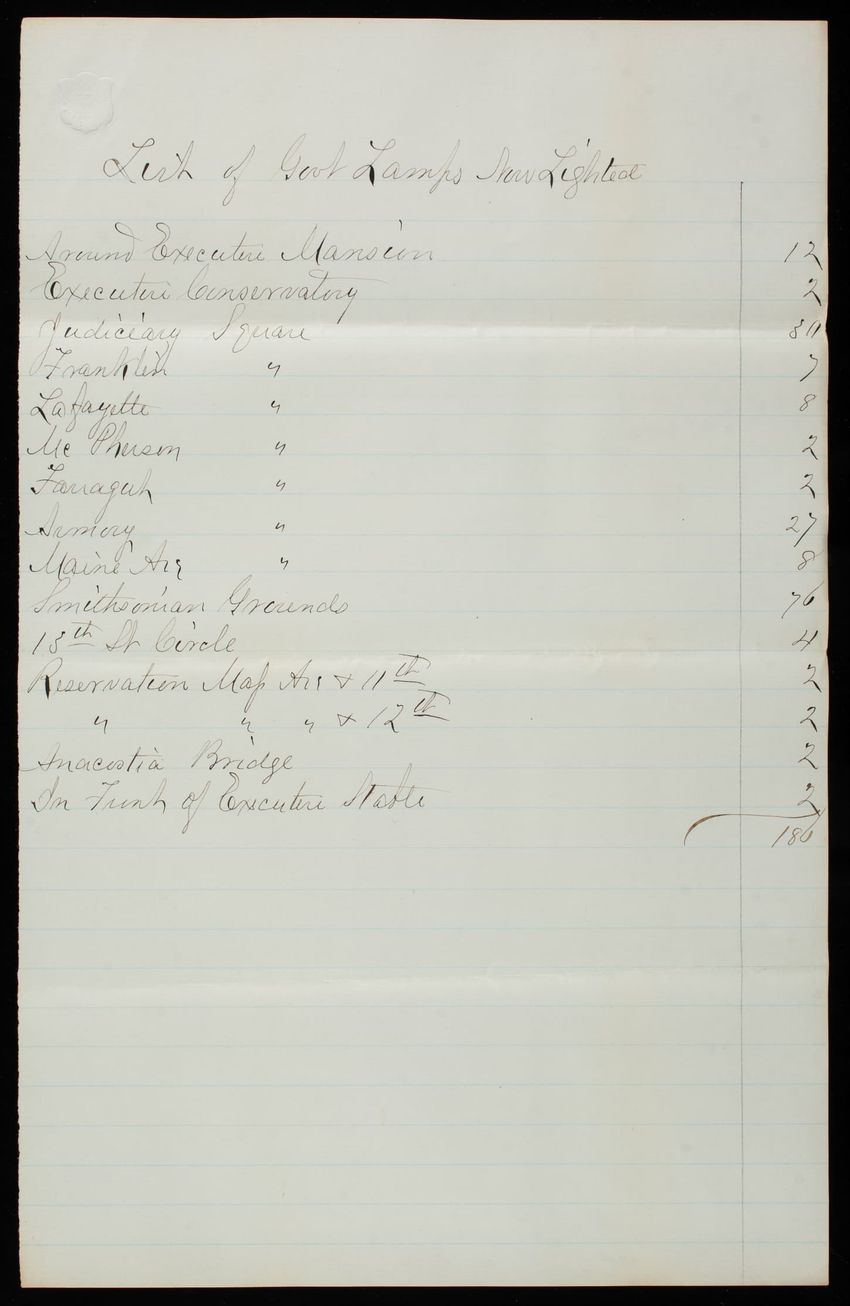 List of Govt Lamps Now Lighted
Around Executive Mansion 12
Executive Conservatory 2
Judiciary Square 30
Franklin " 7
Lafayette " 8
Mc Pherson " 2
Farragut " 2
Armory " 27
Maine Av " 8
Smithsonian Grounds 76
13th St Circle 4
Reservation Mass Av & 11th 2
" " " & 12th 2
Anacostia Bridge 2
In Front of Executive Stable 2
186